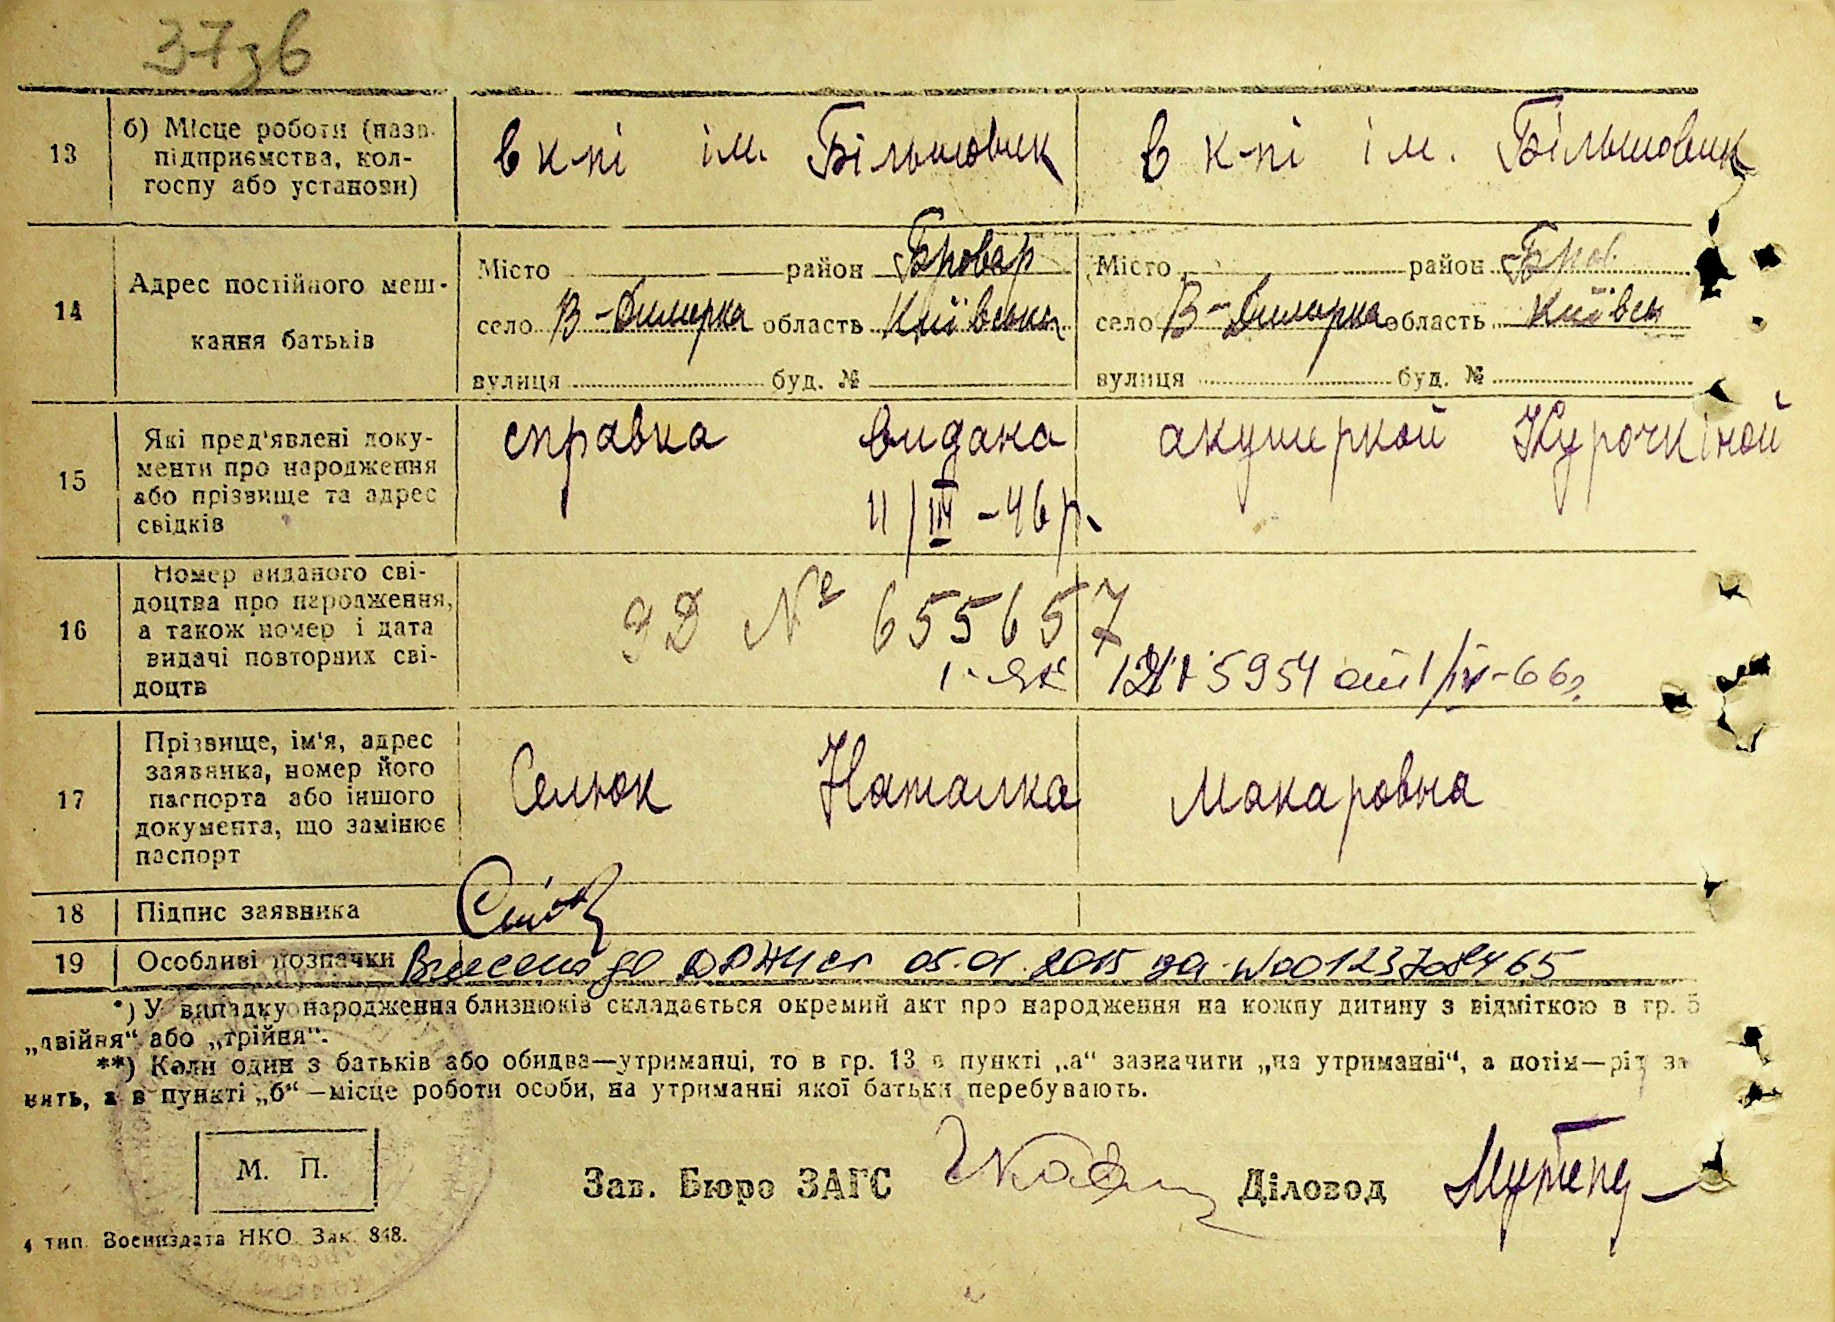 37зв
13 б) Місце роботи (назв. підприємства, колгоспу або установи)
в к-пі ім. Більшовик
в к-пі ім. Більшовик
14 Адрес постійного мешкання батьків
Місто район Бровар
село В-Димерка область Київська
вулиця буд. №
Місто район Бров
село В-Димерка область Київсь
вулиця буд. №
15 Які пред'явлені документи про народження або прізвище та адрес свідків
справка видана акушеркой Курочкіной
11/III-46 р.
16 Номер виданого свідоцтва про народження, а також номер і дата видачі повторних свідоцтв
№ 655657
5954 от 1/IV-66 г.
17 Прізвище, ім'я, адрес заявника, номер його паспорта або іншого документа, що замінює паспорт
Селюк Наталка Макаровна
18 Підпис заявника
19 Особливі позначки Внесено до ДРАЦСГ 05.01.2015 за №00123708465
*) У випадку народження близнюків складається окремий акт про народження на кожну дитину з відміткою в гр. 5
„двійня“ або „трійня“.
**) Коли один з батьків або обидва—утриманці, то в гр. 13 в пункті „а“ зазначити „на утриманні“, а потім—рід за
нять, а в пункті „б“—місце роботи особи, на утриманні якої батьки перебувають.
М. П.
Зав. Бюро ЗАГС Діловод
4 тип. Воениздата НКО. Зак. 848.